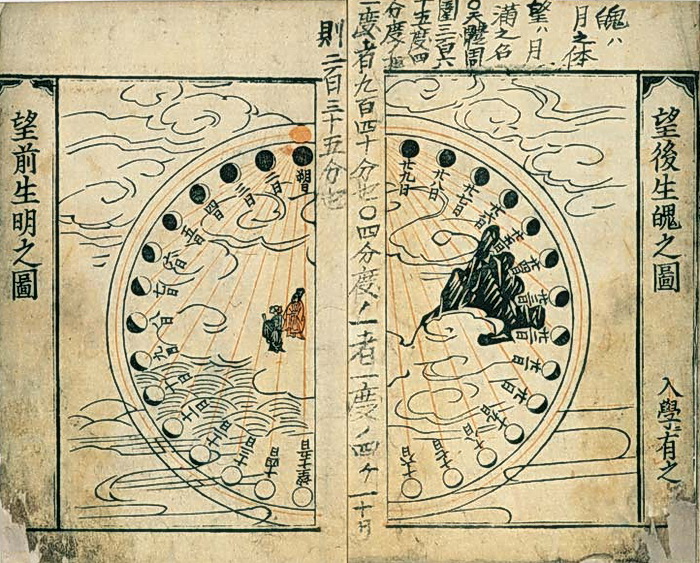 望後生魄之圖
入學有之
魄ハ
月之体
望ハ月
満之名
〇天體周
圍三百六
十五度四
分度ノ
一度者九百四十分也〇四分度ノ一者一度ノ四ケ一
則二百三十五分也
廿九日
廿八日
廿七日
廿六日
廿五日
廿四日
廿三日
廿二日
廿一日
廿日
十九日
十八日
十七日
十六日
望十五日
十四日
十三日
十二日
十一日
十日
九日
八日
七日
六日
五日
四日
三日
二日
朔日
望前生明之圖